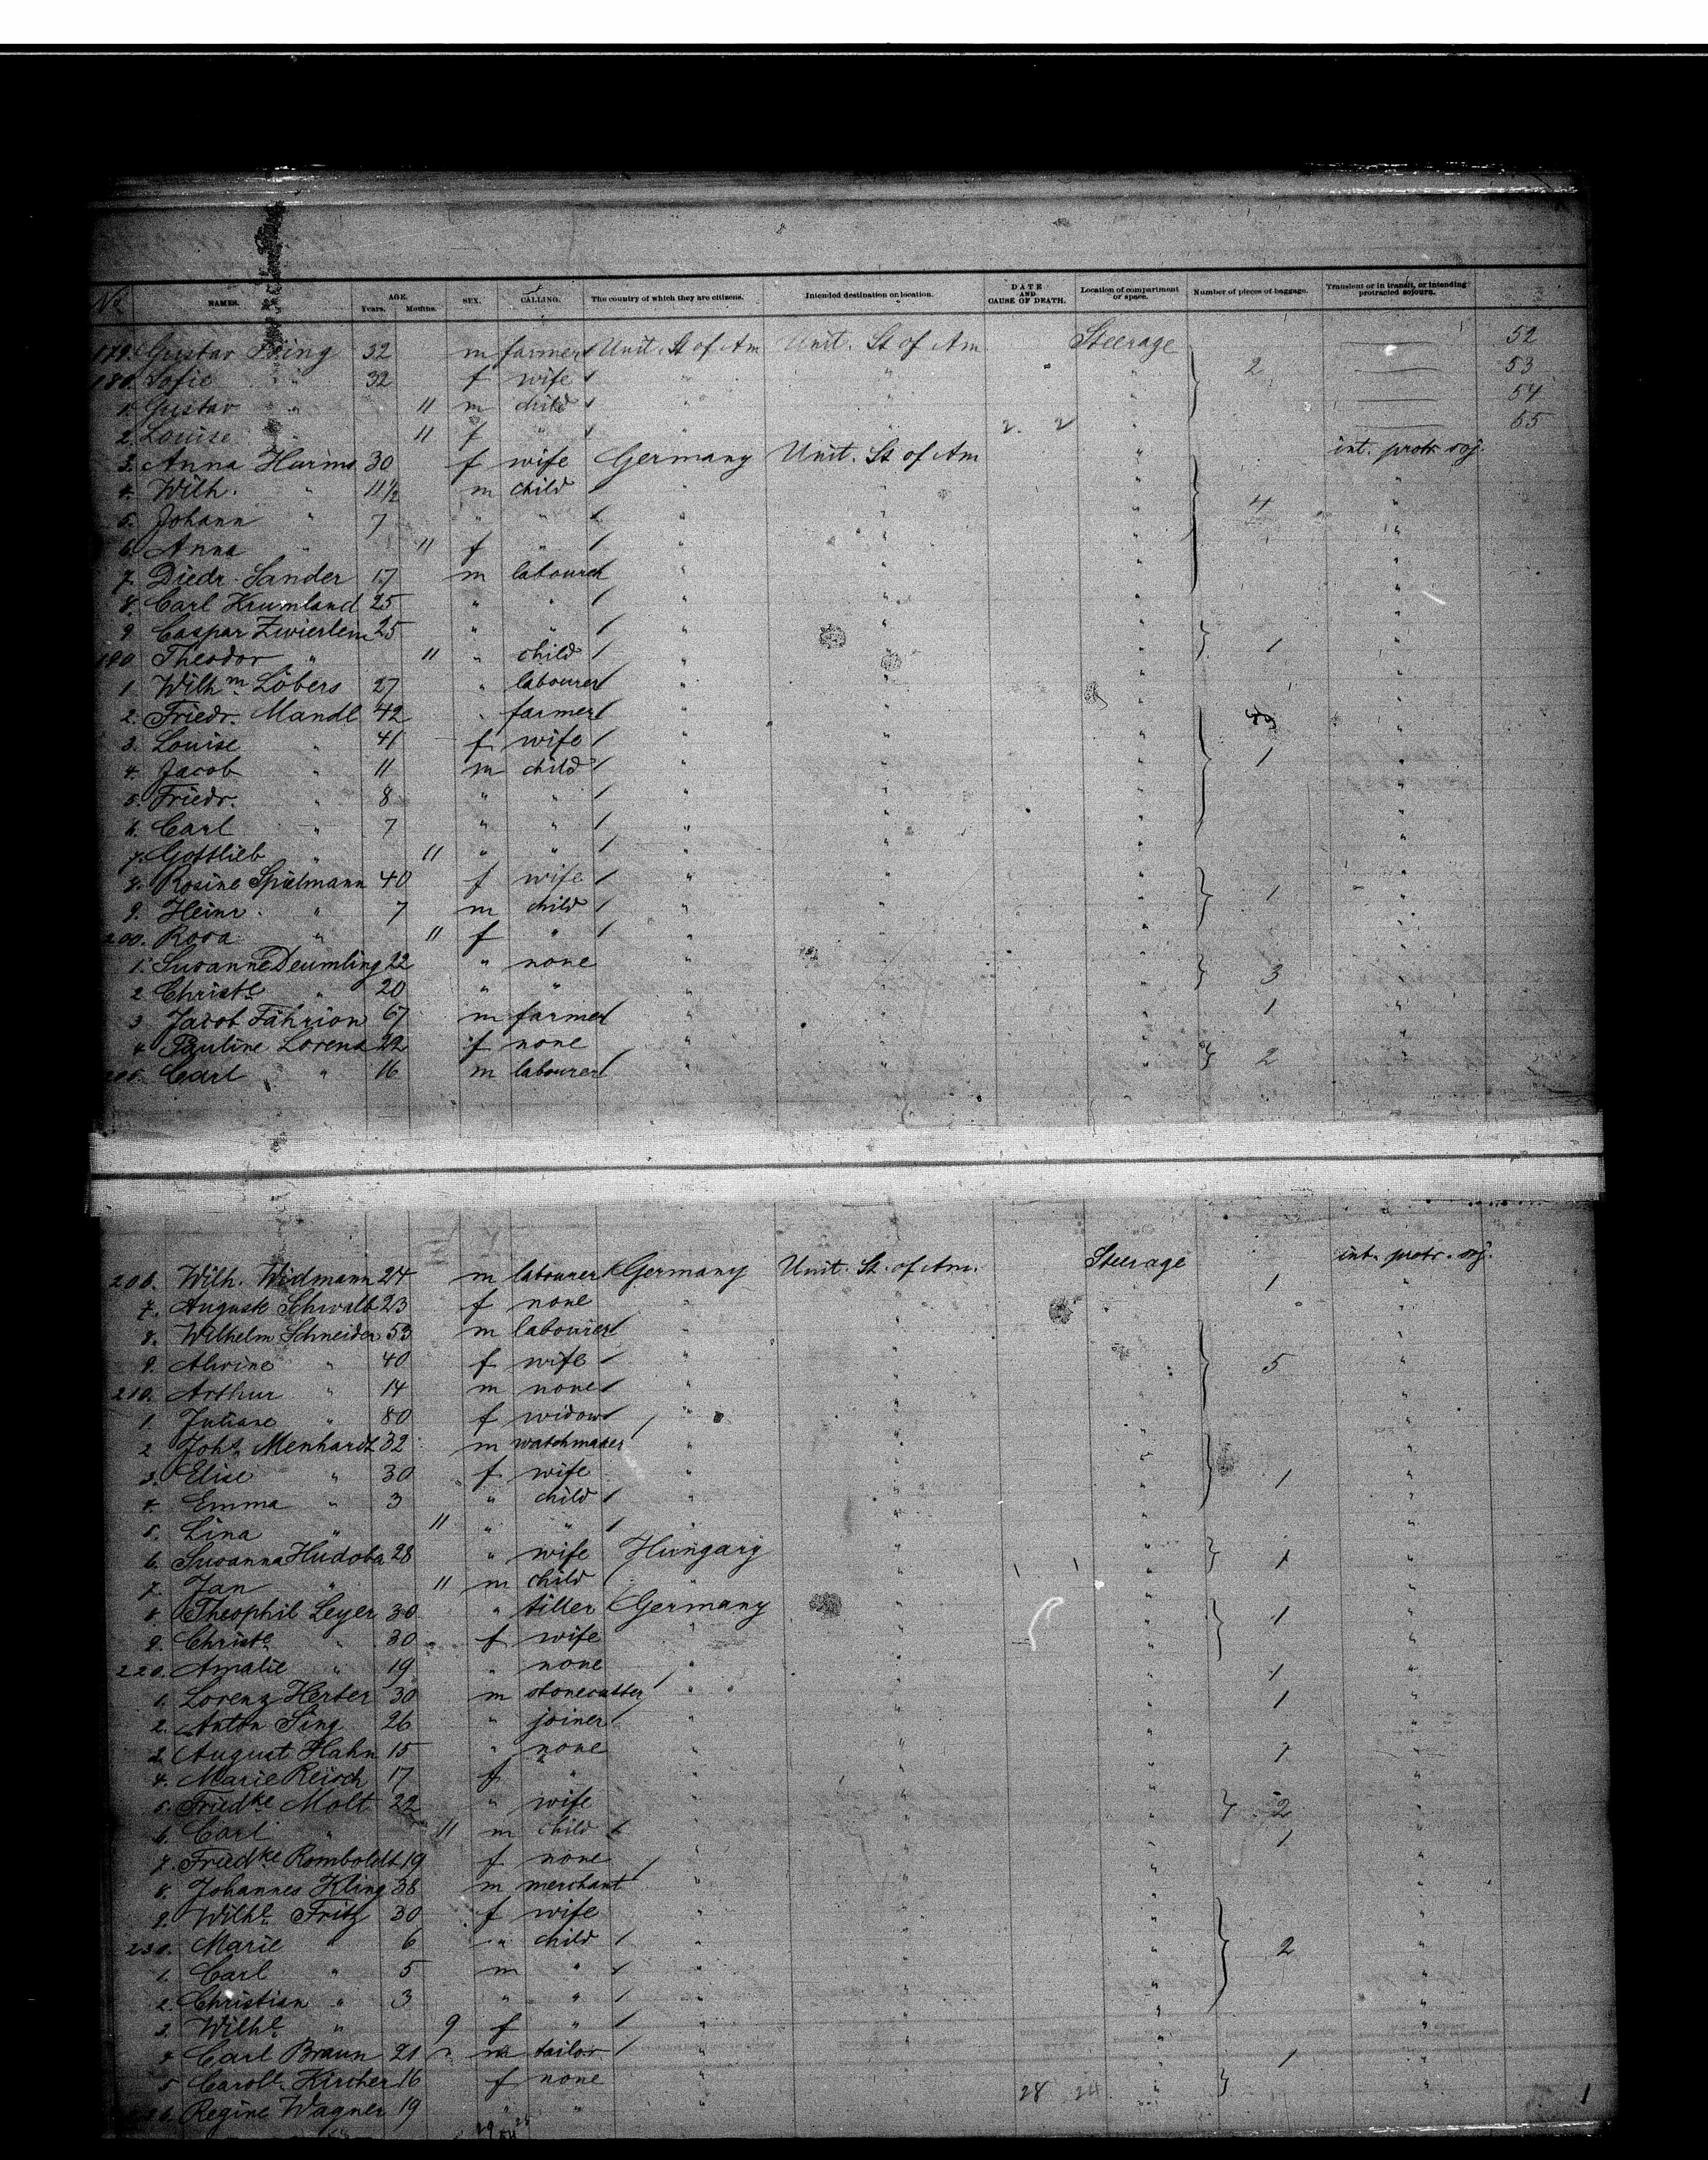 No. NAMES. AGE. Years. Months. SEX. CALLING. The country of which they are citizens. Intended destination or location. DATE AND CAUSE OF DEATH. Location of compartment or space. Number of pieces of baggage. Transient or in transit, or intending protracted sojourn.
179. Gustav 32 m farmer Unit. St of Am Unit. St of Am. Steerage 52
180. Sofie " 32 f wife " " " 2 53
1. Gustav " 11 m child " " " 54
2. Louise " 11 f " " " 2. 2 " 55
3. Anna Harms 30 f wife Germany Unit. St of Am " int. protr. soj.
4. Wilh. " 11½ m child " " " 4 "
5. Johann " 7 " " " " " "
6. Anna " 11 f " " " " "
7. Diedr. Sander 17 m labourer " " " "
8. Carl Krumland 25 " " " " " "
9. Caspar Zwierlein 25 " " " " " "
190 Theodor " 11 " child " " " 1 "
1 Wilhm Löbers 27 " labourer " " " "
2. Friedr. Mandl 42 " farmer " " " "
3. Louise " 41 f wife " " " 1 "
4. Jacob " 11 m child " " " "
5. Friedr. " 8 " " " " " "
6. Carl " 7 " " " " " "
7. Gottlieb " 11 " " " " " "
8. Rosine Spielmann 40 f wife " " " 1 "
9. Heinr. " 7 m child " " " "
200. Rosa " 11 f " " " " "
1. Susanne Deumling 22 " none " " " 3 "
2 Christe " 20 " " " " " "
3 Jacob Fahrion 67 m farmer " " " 1 "
4 Pauline Lorenz 22 f none " " " 2 "
205. Carl " 16 m labourer " " " "
206. Wilh. Widmann 24 m labourer Germany Unit. St. of Am. Steerage 1 int. protr. soj.
7. Auguste Schwalb 23 f none " " " "
8. Wilhelm Schneider 53 m labourer " " " "
9. Alwine " 40 f wife " " " 5 "
210. Arthur " 14 m none " " " "
1. Juliane " 80 f widow " " " "
2 Johs. Menhardt 32 m watchmaker " " " "
3. Elise " 30 f wife " " " 1 "
4. Emma " 3 " child " " " "
5. Lina " 11 " " " " " "
6. Susanna Hudoba 28 " wife Hungary " " 1 "
7. Jan " 11 m child " " " "
8 Theophil Leyer 30 " tiller Germany " " 1 "
9. Christe " 30 f wife " " " "
220. Amalie " 19 " none " " " 1 "
1. Lorenz Herter 30 m stonecutter " " " 1 "
2. Anton Sing 26 " joiner " " " "
3. August Hahn 15 " none " " " 1 "
4. Marie Reisch 17 f " " " " "
5. Friedke Molt 22 " wife " " " 2 "
6. Carl " 11 m child " " " 1 "
7. Friedke Romboldt 19 f none " " " "
8. Johannes Kling 38 m merchant " " " "
9. Wilhe Fritz 30 f wife " " " "
230. Marie " 6 " child " " " 2 "
1. Carl " 5 m " " " " "
2. Christian " 3 " " " " " "
3. Wilhe " 9 f " " " " "
4 Carl Braun 21 m tailor " " " 1 "
5 Carole Kircher 16 f none " " "
Regine Wagner 19 " " 28 24 1